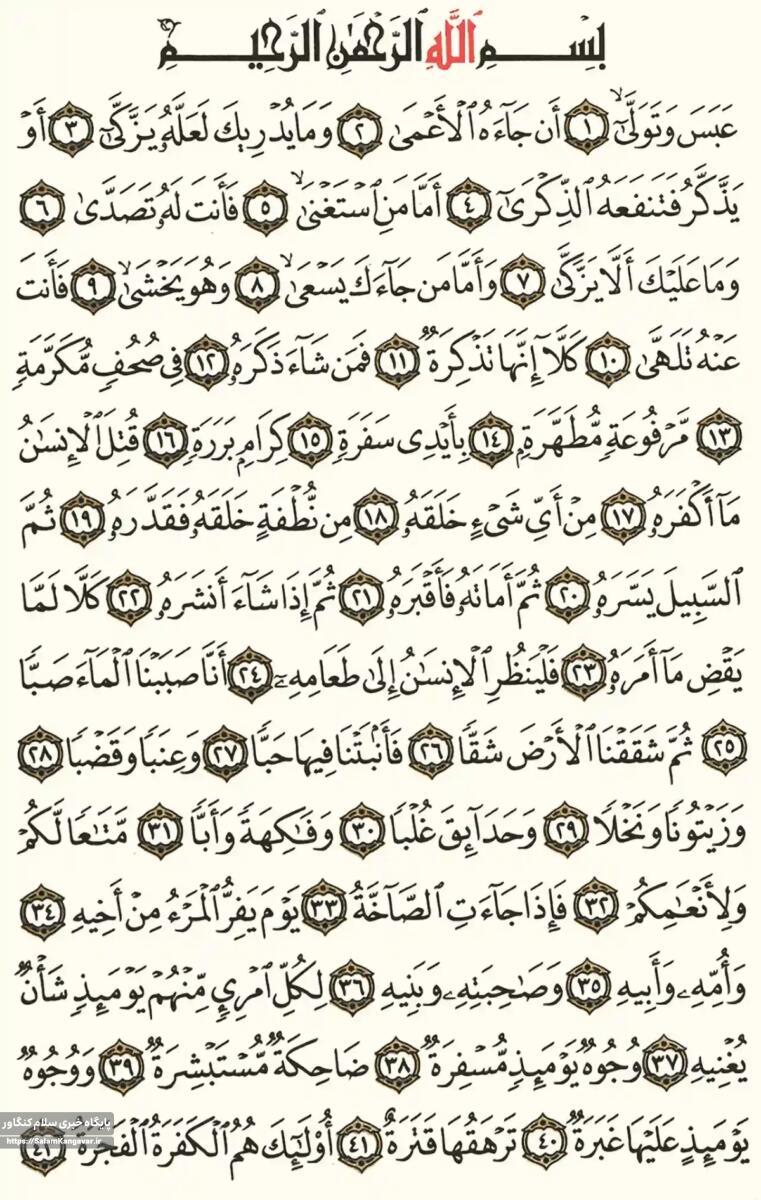 بِسْمِ ٱللَّهِ ٱلرَّحْمَٰنِ ٱلرَّحِيمِ
عَبَسَ وَتَوَلَّىٰٓ ۙ ﴿١﴾ أَن جَآءَهُ ٱلْأَعْمَىٰ ﴿٢﴾ وَمَا يُدْرِيكَ لَعَلَّهُۥ يَزَّكَّىٰٓ ﴿٣﴾ أَوْ
يَذَّكَّرُ فَتَنفَعَهُ ٱلذِّكْرَىٰٓ ﴿٤﴾ أَمَّا مَنِ ٱسْتَغْنَىٰ ۙ ﴿٥﴾ فَأَنتَ لَهُۥ تَصَدَّىٰ ﴿٦﴾
وَمَا عَلَيْكَ أَلَّا يَزَّكَّىٰ ﴿٧﴾ وَأَمَّا مَن جَآءَكَ يَسْعَىٰ ۙ ﴿٨﴾ وَهُوَ يَخْشَىٰ ۙ ﴿٩﴾ فَأَنتَ
عَنْهُ تَلَهَّىٰ ﴿١٠﴾ كَلَّآ إِنَّهَا تَذْكِرَةٌ ﴿١١﴾ فَمَن شَآءَ ذَكَرَهُۥ ﴿١٢﴾ فِى صُحُفٍ مُّكَرَّمَةٍ
﴿١٣﴾ مَّرْفُوعَةٍ مُّطَهَّرَةٍۭ ﴿١٤﴾ بِأَيْدِى سَفَرَةٍ ﴿١٥﴾ كِرَامٍۭ بَرَرَةٍ ﴿١٦﴾ قُتِلَ ٱلْإِنسَٰنُ
مَآ أَكْفَرَهُۥ ﴿١٧﴾ مِنْ أَىِّ شَىْءٍ خَلَقَهُۥ ﴿١٨﴾ مِن نُّطْفَةٍ خَلَقَهُۥ فَقَدَّرَهُۥ ﴿١٩﴾ ثُمَّ
ٱلسَّبِيلَ يَسَّرَهُۥ ﴿٢٠﴾ ثُمَّ أَمَاتَهُۥ فَأَقْبَرَهُۥ ﴿٢١﴾ ثُمَّ إِذَا شَآءَ أَنشَرَهُۥ ﴿٢٢﴾ كَلَّا لَمَّا
يَقْضِ مَآ أَمَرَهُۥ ﴿٢٣﴾ فَلْيَنظُرِ ٱلْإِنسَٰنُ إِلَىٰ طَعَامِهِۦٓ ﴿٢٤﴾ أَنَّا صَبَبْنَا ٱلْمَآءَ صَبًّا
﴿٢٥﴾ ثُمَّ شَقَقْنَا ٱلْأَرْضَ شَقًّا ﴿٢٦﴾ فَأَنۢبَتْنَا فِيهَا حَبًّا ﴿٢٧﴾ وَعِنَبًا وَقَضْبًا ﴿٢٨﴾
وَزَيْتُونًا وَنَخْلًا ﴿٢٩﴾ وَحَدَآئِقَ غُلْبًا ﴿٣٠﴾ وَفَٰكِهَةً وَأَبًّا ﴿٣١﴾ مَّتَٰعًا لَّكُمْ
وَلِأَنْعَٰمِكُمْ ﴿٣٢﴾ فَإِذَا جَآءَتِ ٱلصَّآخَّةُ ﴿٣٣﴾ يَوْمَ يَفِرُّ ٱلْمَرْءُ مِنْ أَخِيهِ ﴿٣٤﴾
وَأُمِّهِۦ وَأَبِيهِ ﴿٣٥﴾ وَصَٰحِبَتِهِۦ وَبَنِيهِ ﴿٣٦﴾ لِكُلِّ ٱمْرِئٍ مِّنْهُمْ يَوْمَئِذٍ شَأْنٌ
يُغْنِيهِ ﴿٣٧﴾ وُجُوهٌ يَوْمَئِذٍ مُّسْفِرَةٌ ﴿٣٨﴾ ضَاحِكَةٌ مُّسْتَبْشِرَةٌ ﴿٣٩﴾ وَوُجُوهٌ
يَوْمَئِذٍ عَلَيْهَا غَبَرَةٌ ﴿٤٠﴾ تَرْهَقُهَا قَتَرَةٌ ﴿٤١﴾ أُو۟لَٰٓئِكَ هُمُ ٱلْكَفَرَةُ ٱلْفَجَرَةُ ﴿٤٢﴾
پایگاه خبری سلام کنگاور
https://SalamKangavar.ir